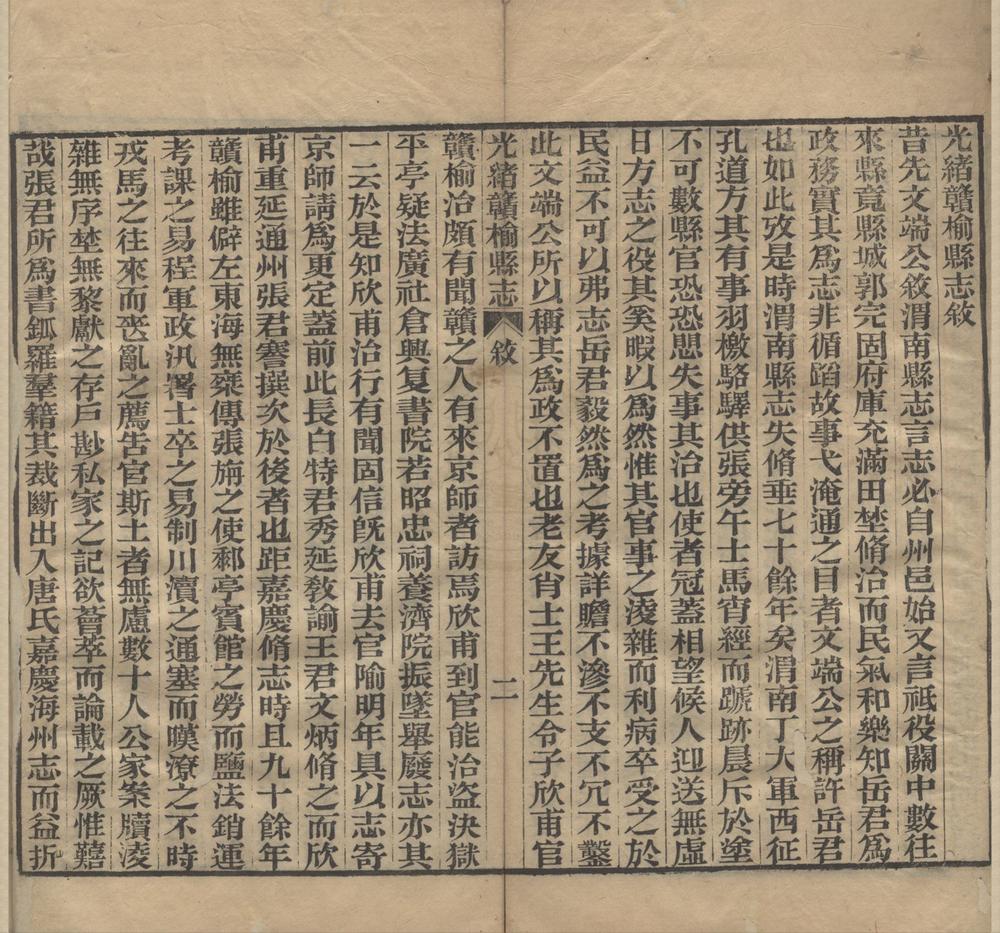 光緒贛榆縣志敘
昔先文端公敘渭南縣志言志必自州邑始又言祗役關中數往
來縣竟縣城郭完固府庫充滿田埜脩治而民氣和樂知岳君爲
政務實其爲志非循蹈故事弋淹通之目者文端公之稱許岳君
也如此攷是時渭南縣志失脩垂七十餘年矣渭南丁大軍西征
孔道方其有事羽檄駱驛供張旁午士馬宵經而蹏跡晨斥於塗
不可數縣官恐恐懇失事其治也使者冠蓋相望候人迎送無虛
日方志之役其奚暇以爲然惟其官事之淩雜而利病卒受之於
民益不可以弗志岳君毅然爲之考據詳贍不滲不支不冗不鑿
此文端公所以稱其爲政不置也老友肖士王先生令子欣甫官
光緒贛榆縣志 敘 二
贛榆治頗有聞贛之人有來京師者訪焉欣甫到官能治盜決獄
平亭疑法廣社倉興复書院若昭忠祠養濟院振墜舉廢志亦其
一云於是知欣甫治行有聞固信旣欣甫去官隃明年具以志寄
京師請爲更定蓋前此長白特君秀延敎諭王君文炳脩之而欣
甫重延通州張君謇撰次於後者也距嘉慶脩志時且九十餘年
贛榆雖僻左東海無乘傳張旃之使郵亭賓館之勞而鹽法銷運
考課之易程軍政汛署士卒之易制川瀆之通塞而嘆潦之不時
戎馬之往來而亂之薦告官斯土者無慮數十人公家案牘淩
雜無序埜無黎獻之存戶尠私家之記欲薈萃而論載之厥惟囏
哉張君所爲書鈲羅羣籍其裁斷出入唐氏嘉慶海州志而益折